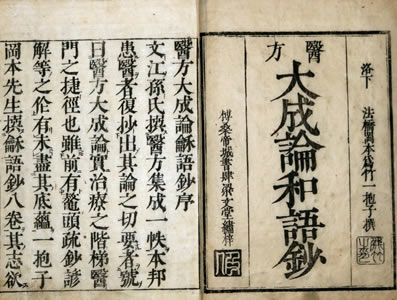 醫方
洛下 法橋岡本爲竹一抱子撰
大成論和語鈔
榑桑帝城書肆梁文堂繡梓
醫方大成論龢語鈔序
文江孫氏撰醫方集成一帙本邦
患醫者復抄出其論之切要者號
曰醫方大成論實治療之階梯醫
門之捷徑也雖前有鼇頭疏鈔諺
解等之作有未盡其底蘊一抱子
岡本先生撰龢語鈔八卷其志欲